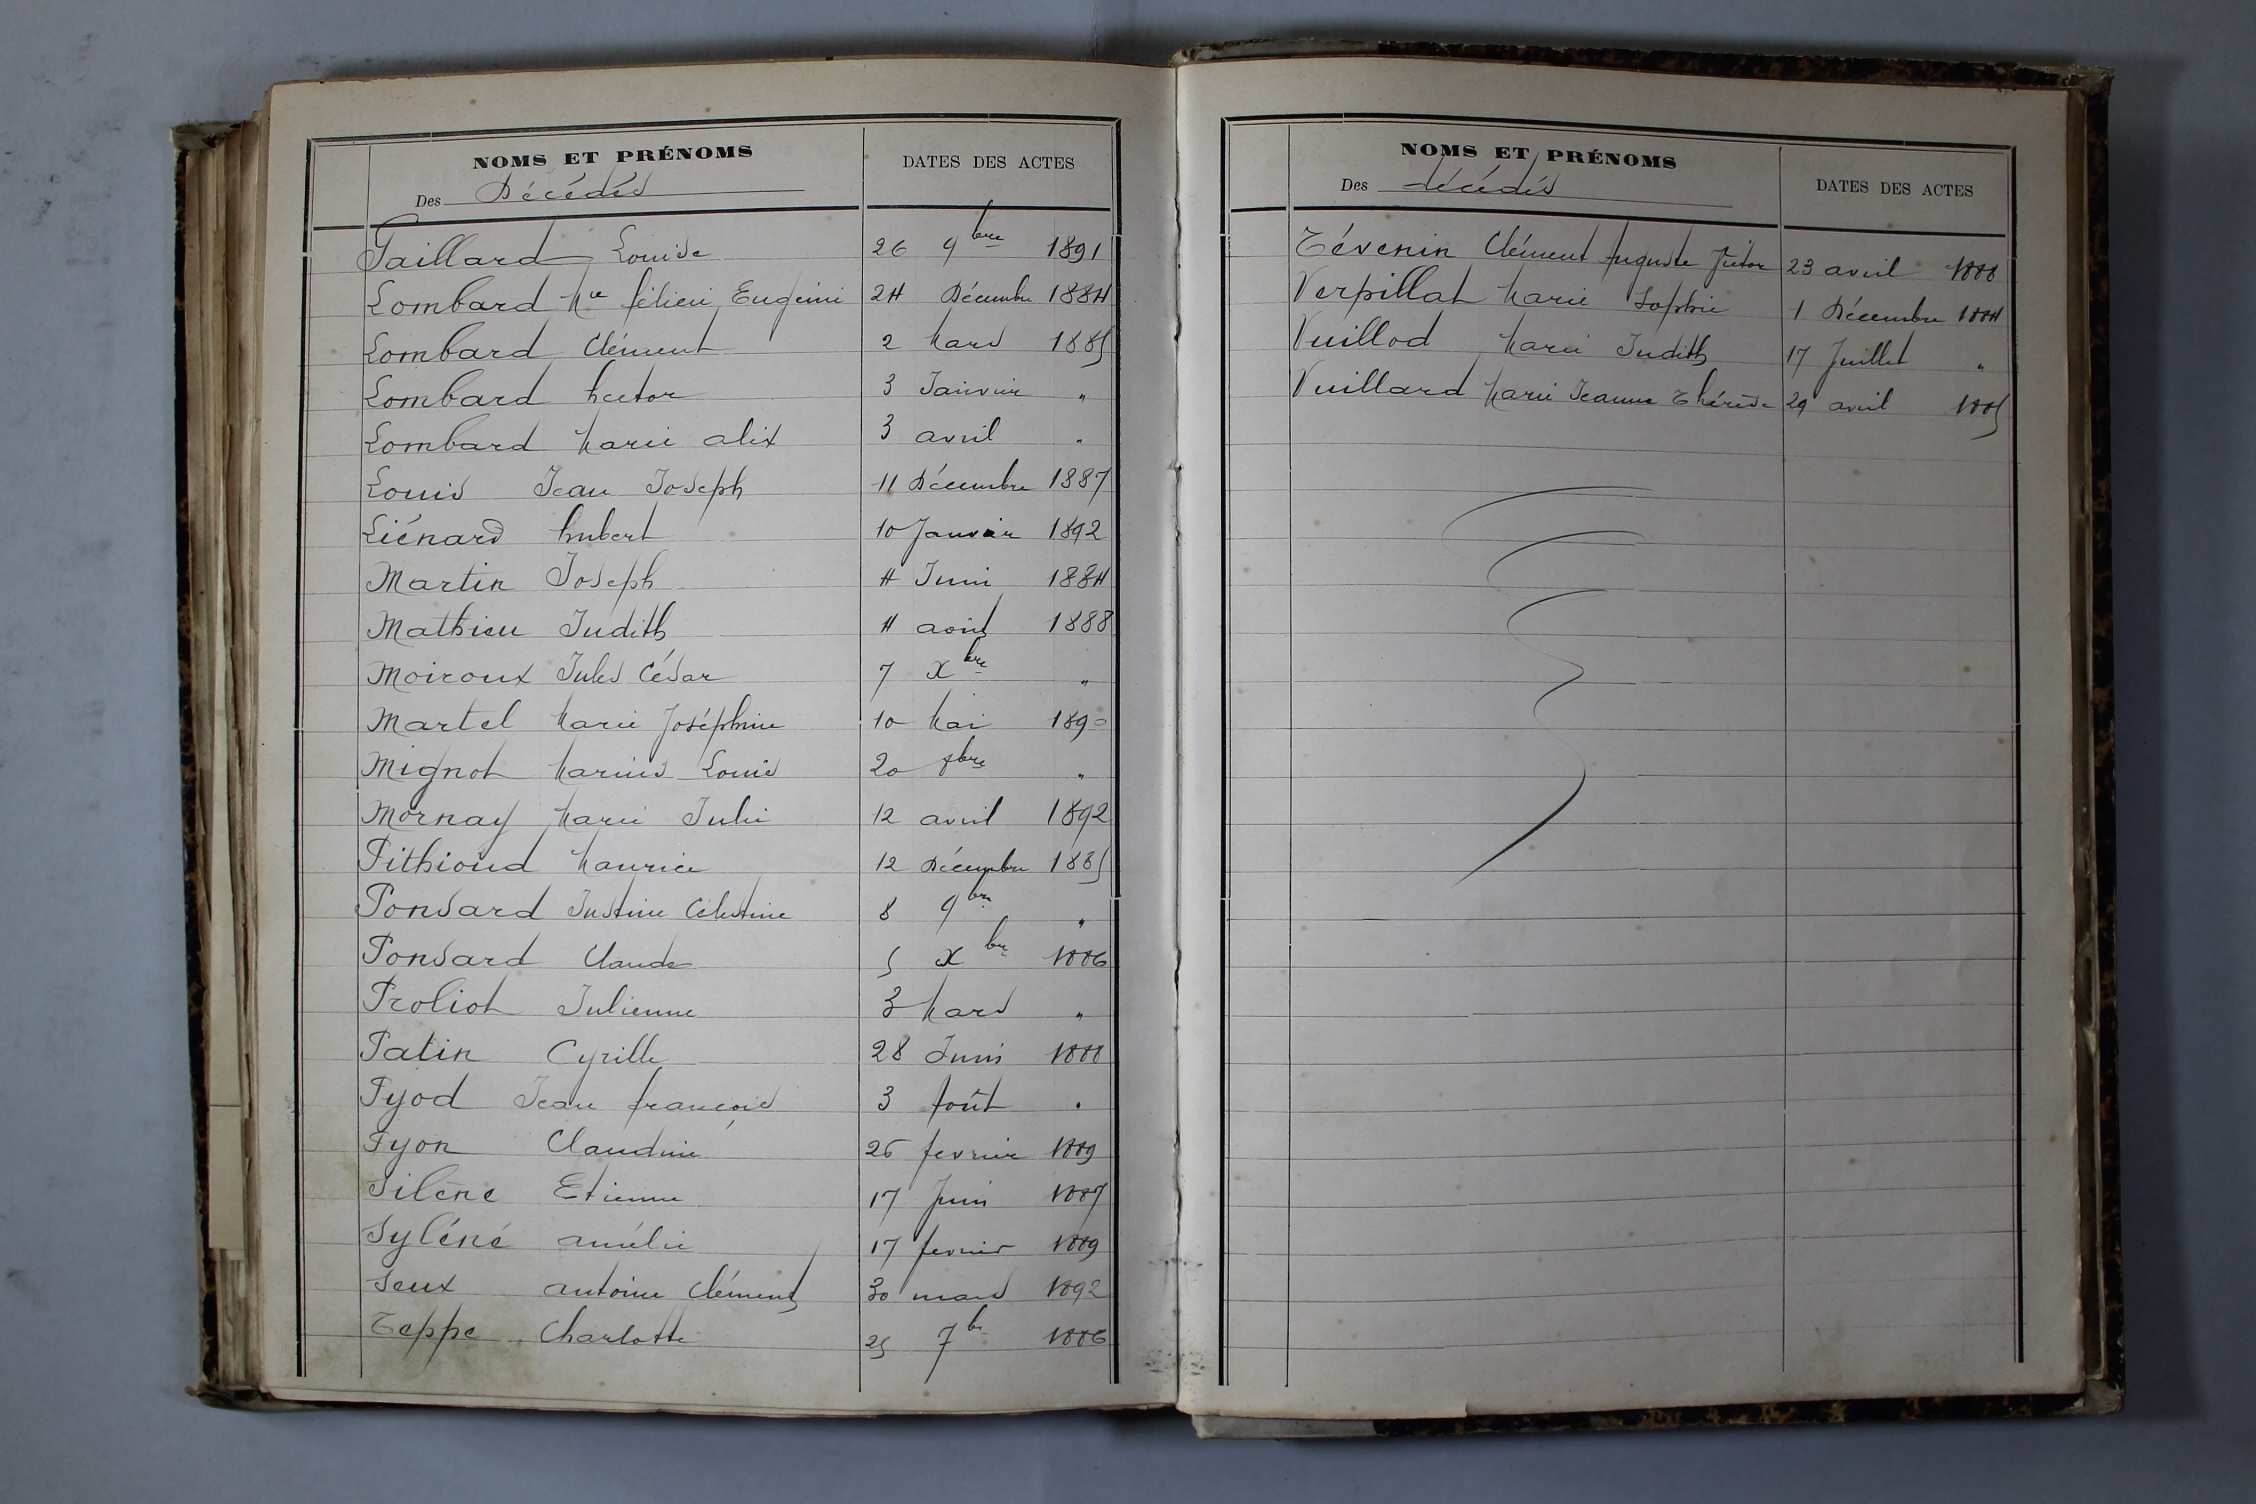 NOMS ET PRÉNOMS
DATES DES ACTES
Des Décédés
Gaillard Louise 26 9bre 1891
Lombard Mie félicie Eugénie 24 Décembre 1884
Lombard Clément 2 Mars 1885
Lombard hector 3 Janvier "
Lombard Marie alix 3 avril "
Louis Jean Joseph 11 Décembre 1887
Liénard hubert 10 Janvier 1892
Martin Joseph 4 Juin 1884
Mathieu Judith 4 août 1888
Moiroux Jules César 7 Xbre "
Martel Marie Joséphine 10 Mai 1890
Mignot Marius Louis 20 "
Mornay Marie Julie 12 avril 1892
Pithioud Maurice 12 Décembre 1885
Ponsard Justine Célestine 8 9bre "
Ponsard Claude 5 Xbre 1886
Proliot Julienne 3 Mars "
Patin Cyrille 28 Juin 1888
Pyod Jean françois 3 Août "
Pyon Claudine fevrier 1889
Silène Etienne 17 Juin 1887
Syléné amélie 17 fevrier 1889
Seux antoine Clément 30 mars 1892
Teppe Charlotte 25 7bre 1886
NOMS ET PRÉNOMS
DATES DES ACTES
Des décédés
Tévenin Clément Auguste 23 avril 1888
Verpillat Marie Sophie 1 Décembre 1884
Vuillod Marie Judith 17 Juillet "
Vuillard Marie Jeanne Thérèse 29 avril 1885